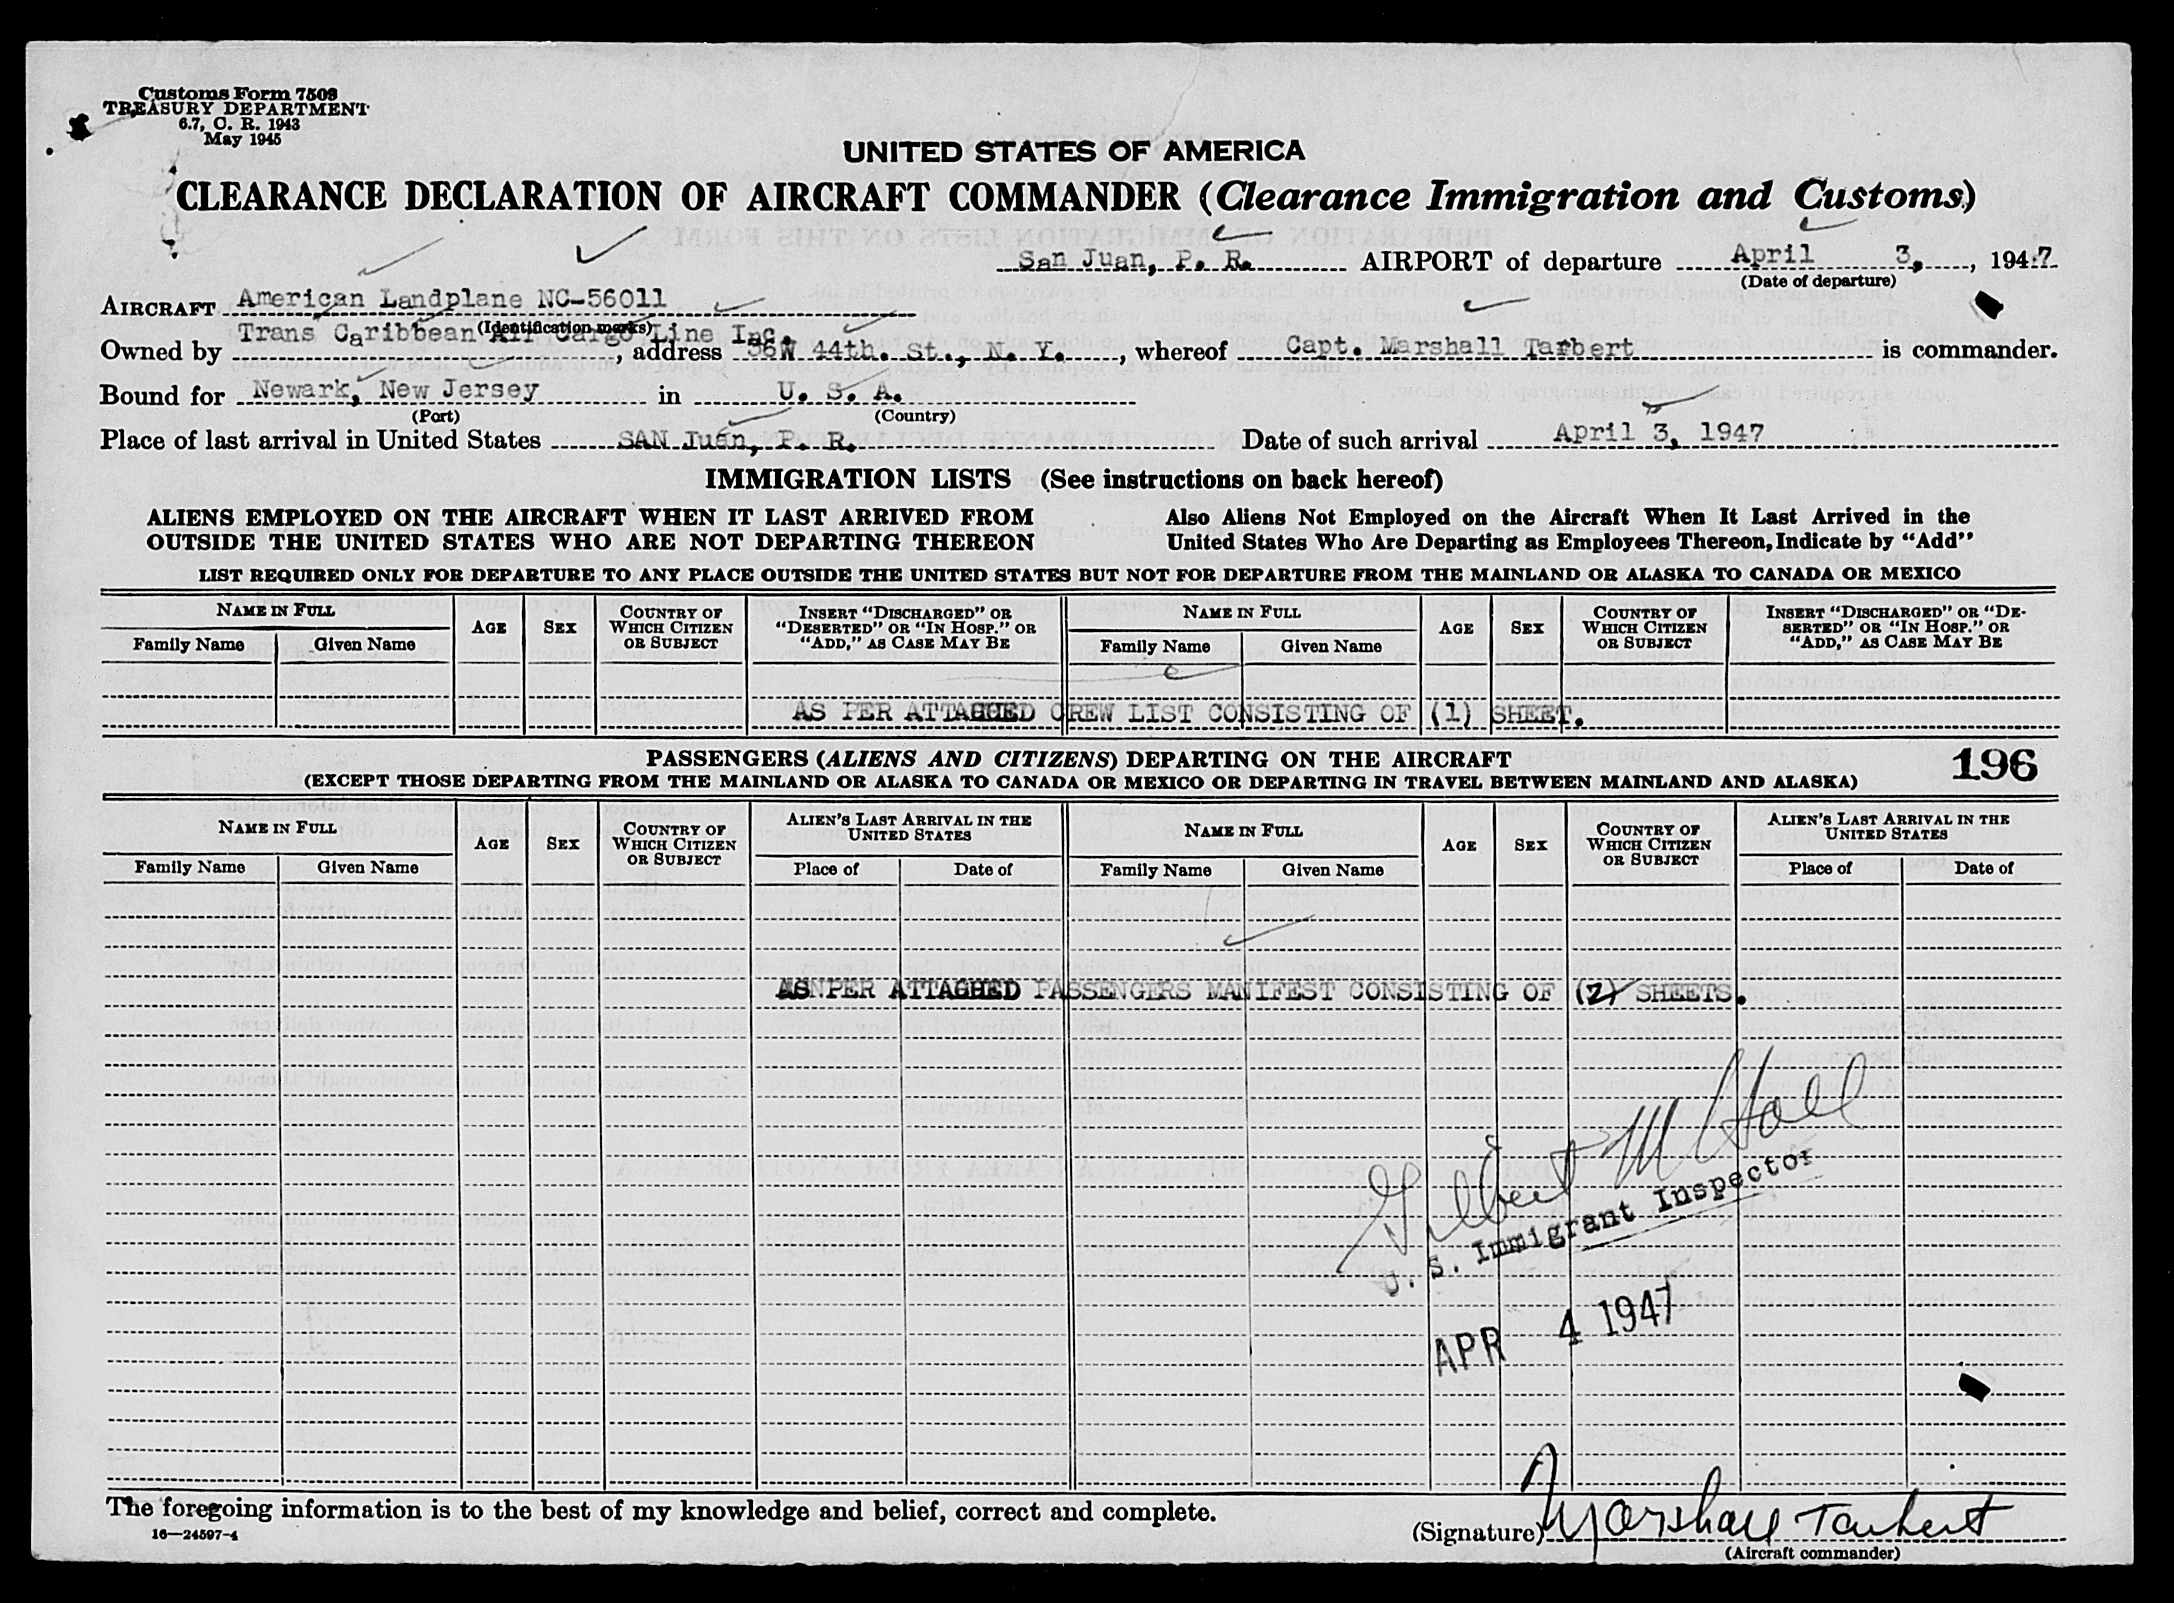 Customs Form 7508
TREASURY DEPARTMENT
6.7, C. R. 1943
May 1945
UNITED STATES OF AMERICA
CLEARANCE DECLARATION OF AIRCRAFT COMMANDER (Clearance Immigration and Customs)
San Juan, P. R. AIRPORT of departure April 3, , 1947
(Date of departure)
AIRCRAFT American Landplane NC-56011
(Identification marks)
Owned by Trans Caribbean Air Cargo Line Inc. , address 36W 44th. St., N. Y. , whereof Capt. Marshall Tarbert is commander.
Bound for Newark, New Jersey in U. S. A.
(Port) (Country)
Place of last arrival in United States SAN Juan, P. R. Date of such arrival April 3, 1947
IMMIGRATION LISTS (See instructions on back hereof)
ALIENS EMPLOYED ON THE AIRCRAFT WHEN IT LAST ARRIVED FROM
OUTSIDE THE UNITED STATES WHO ARE NOT DEPARTING THEREON
Also Aliens Not Employed on the Aircraft When It Last Arrived in the
United States Who Are Departing as Employees Thereon, Indicate by "Add"
LIST REQUIRED ONLY FOR DEPARTURE TO ANY PLACE OUTSIDE THE UNITED STATES BUT NOT FOR DEPARTURE FROM THE MAINLAND OR ALASKA TO CANADA OR MEXICO
NAME IN FULL
Family Name Given Name
AGE
SEX
COUNTRY OF
WHICH CITIZEN
OR SUBJECT
INSERT "DISCHARGED" OR
"DESERTED" OR "IN HOSP." OR
"ADD," AS CASE MAY BE
NAME IN FULL
Family Name Given Name
AGE
SEX
COUNTRY OF
WHICH CITIZEN
OR SUBJECT
INSERT "DISCHARGED" OR "DE-
SERTED" OR "IN HOSP." OR
"ADD," AS CASE MAY BE
AS PER ATTACHED CREW LIST CONSISTING OF (1) SHEET.
PASSENGERS (ALIENS AND CITIZENS) DEPARTING ON THE AIRCRAFT
196
(EXCEPT THOSE DEPARTING FROM THE MAINLAND OR ALASKA TO CANADA OR MEXICO OR DEPARTING IN TRAVEL BETWEEN MAINLAND AND ALASKA)
NAME IN FULL
Family Name Given Name
AGE
SEX
COUNTRY OF
WHICH CITIZEN
OR SUBJECT
ALIEN'S LAST ARRIVAL IN THE
UNITED STATES
Place of Date of
NAME IN FULL
Family Name Given Name
AGE
SEX
COUNTRY OF
WHICH CITIZEN
OR SUBJECT
ALIEN'S LAST ARRIVAL IN THE
UNITED STATES
Place of Date of
AS PER ATTACHED PASSENGERS MANIFEST CONSISTING OF (2) SHEETS.
Gilbert M Hall
U. S. Immigrant Inspector
APR 4 1947
The foregoing information is to the best of my knowledge and belief, correct and complete.
16—24597-4
(Signature) Marshall Tarbert
(Aircraft commander)